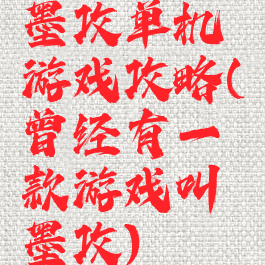 墨攻单机
游戏攻略(
曾经有一
款游戏叫
墨攻)